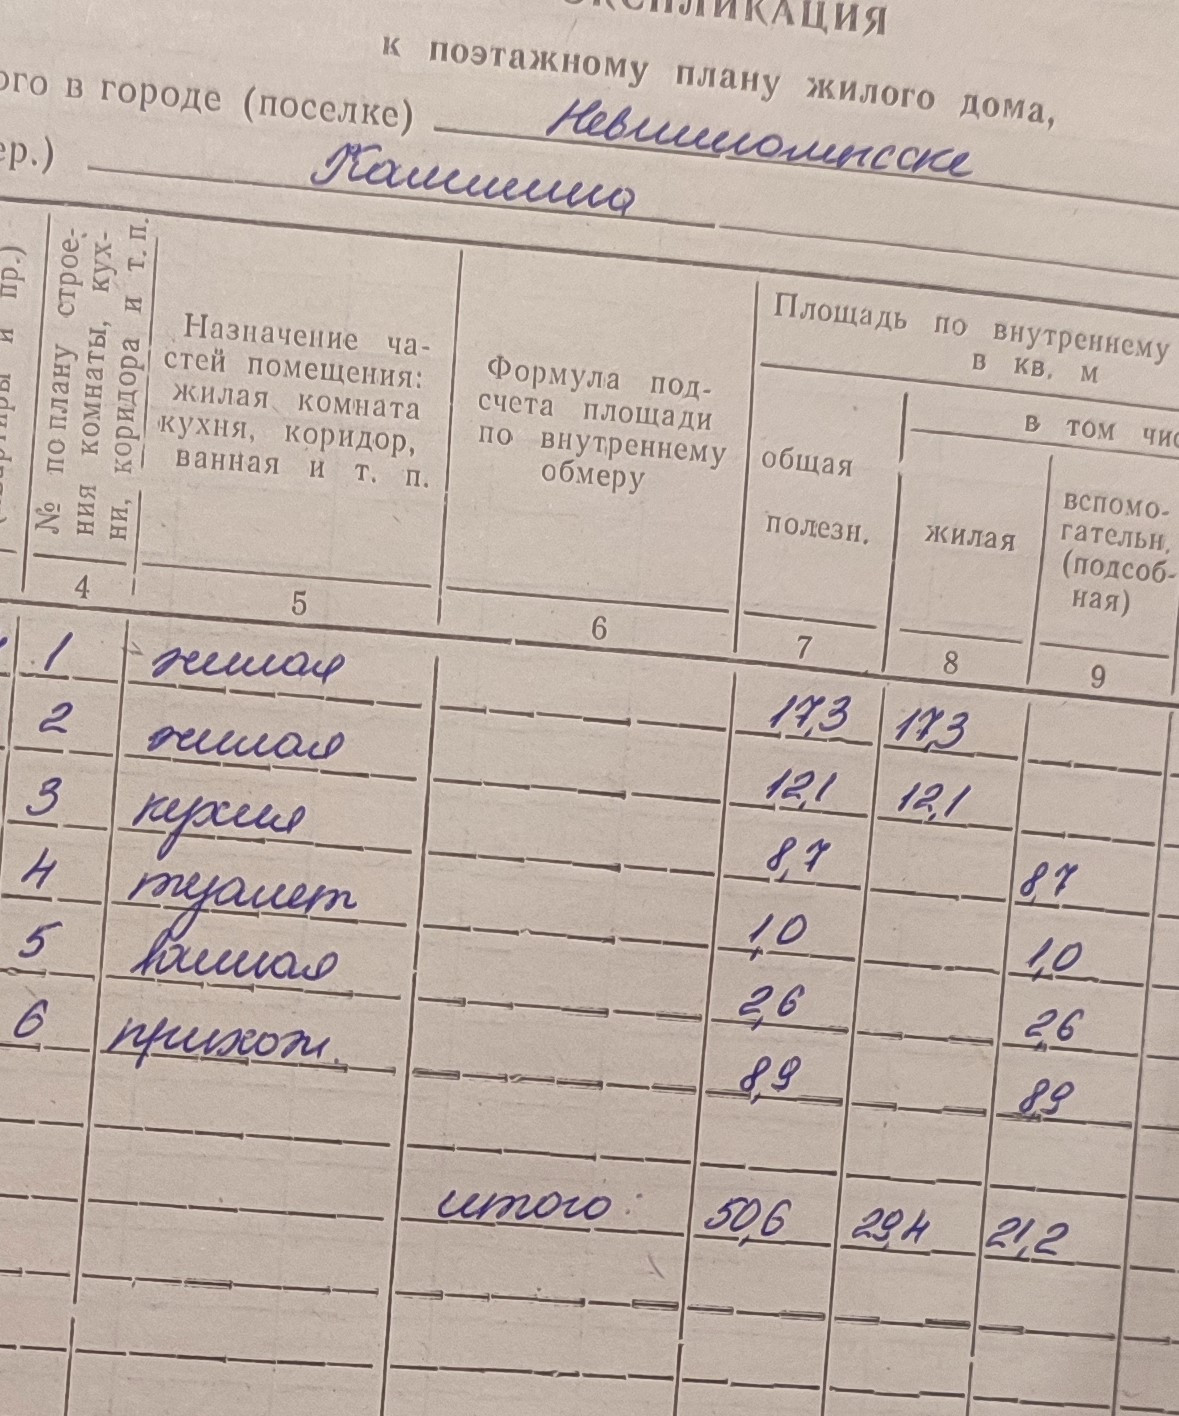 ЭКСПЛИКАЦИЯ
к поэтажному плану жилого дома,
ого в городе (поселке) Невинномысске
ер.) Калинина
пр.)
и
№ по плану строе-
ния комнаты, кух-
ни, коридора и т. п.
Назначение ча-
стей помещения:
жилая комната
кухня, коридор,
ванная и т. п.
Формула под-
счета площади
по внутреннему
обмеру
Площадь по внутреннему
в кв. м
общая
полезн.
в том чис
жилая
вспомо-
гательн.
(подсоб-
ная)
4 5 6 7 8 9
1 жилая 17,3 17,3
2 жилая 12,1 12,1
3 кухня 8,7 8,7
4 туалет 1,0 1,0
5 ванная 2,6 2,6
6 прихож. 8,9 8,9
итого: 50,6 29,4 21,2